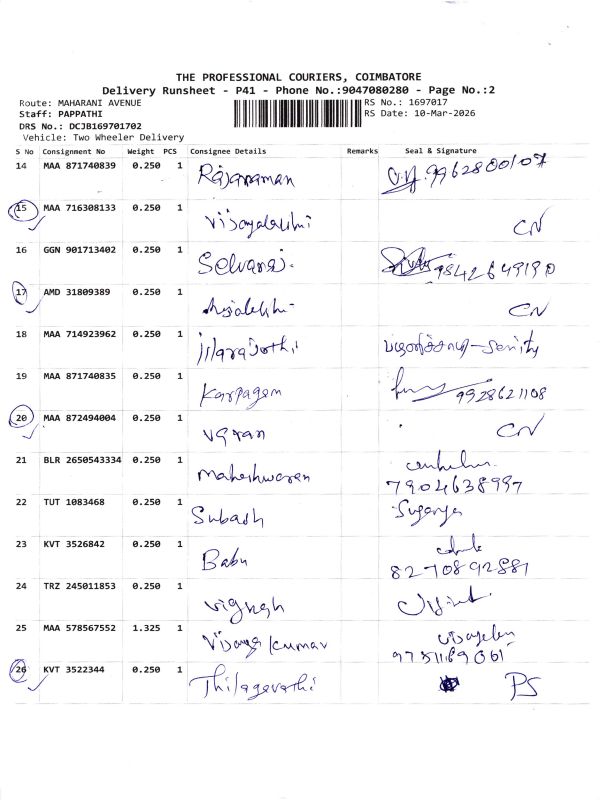 THE PROFESSIONAL COURIERS, COIMBATORE
Delivery Runsheet - P41 - Phone No.:9047080280 - Page No.:2
Route: MAHARANI AVENUE
RS No.: 1697017
Staff: PAPPATHI
RS Date: 10-Mar-2026
DRS No.: DCJB169701702
Vehicle: Two Wheeler Delivery
S No Consignment No Weight PCS Consignee Details Remarks Seal & Signature
14 MAA 871740839 0.250 1 Rajaraman 9962800107
15 MAA 716308133 0.250 1 Vijayalakshmi CN
16 GGN 901713402 0.250 1 Selvaraj. 9842649190
17 AMD 31809389 0.250 1 CN
18 MAA 714923962 0.250 1
19 MAA 871740835 0.250 1 Karpagam 9928621108
20 MAA 872494004 0.250 1 CN
21 BLR 2650543334 0.250 1 Maheshwaran
7904638997
22 TUT 1083468 0.250 1 Subash Suganya
23 KVT 3526842 0.250 1 Babu
8270892881
24 TRZ 245011853 0.250 1 Vignesh
25 MAA 578567552 1.325 1 Vijaya kumar
9751169061
26 KVT 3522344 0.250 1 Thilagavathi PS